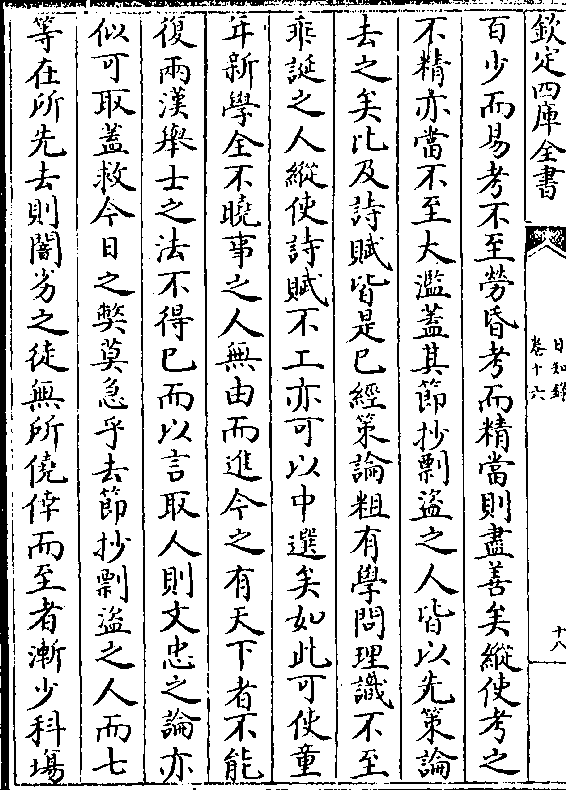 欽定四庫全書
日知錄
卷十六
十八
百少而易考不至勞昏考而精當則盡善矣縱使考之
不精亦當不至大濫蓋其節抄剽盜之人皆以先策論
去之矣比及詩賦皆是已經策論粗有學問理識不至
乖誕之人縱使詩賦不工亦可以中選矣如此可使童
年新學全不曉事之人無由而進今之有天下者不能
復兩漢舉士之法不得已而以言取人則文忠之論亦
似可取蓋救今日之弊莫急乎去節抄剽盜之人而七
等在所先去則闇劣之徒無所僥倖而至者漸少科場